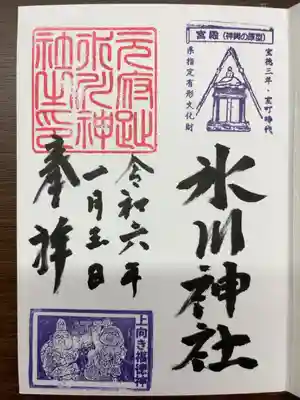 宮殿(神輿の原型)
宝徳三年・室町時代
県指定有形文化財
氷川神社
氷川神
社之印
奉拝
令和六年
一月五日
上向き